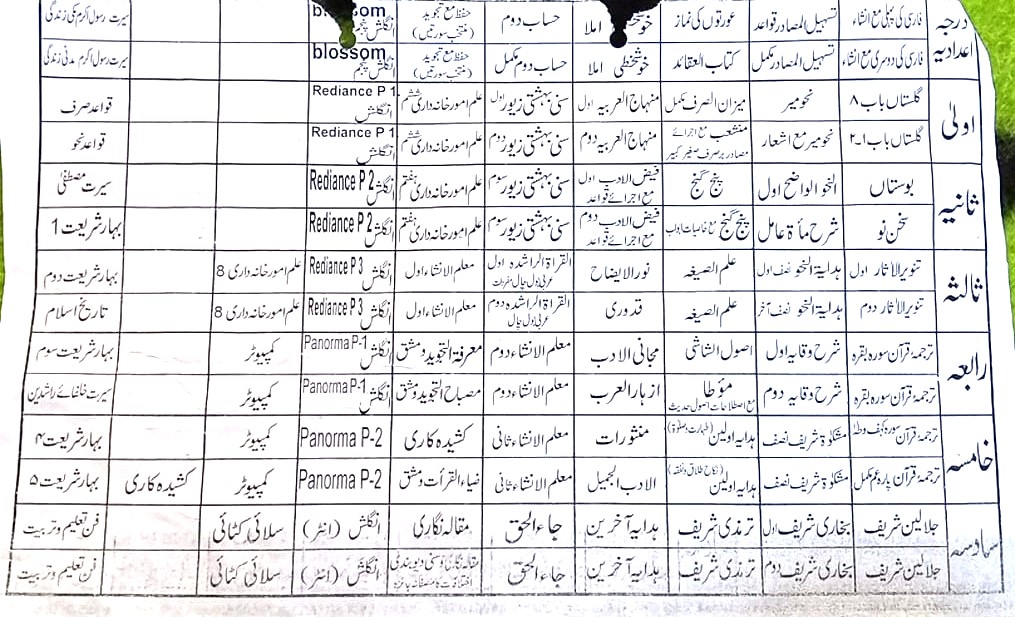 درجہ اعدادیہ
فارسی کی پہلی مع انشاء | تسہیل المصادر قواعد | عورتوں کی نماز | خوشخطی املا | حساب دوم | حفظ مع تجوید (منتخب سورتیں) | blossom انگلش پنجم | سیرت رسول اکرم مکی زندگی
فارسی کی دوسری مع انشاء | تسہیل المصادر مکمل | کتاب العقائد | خوشخطی املا | حساب دوم مکمل | حفظ مع تجوید (منتخب سورتیں) | blossom انگلش پنجم | سیرت رسول اکرم مدنی زندگی
اولیٰ
گلستاں باب ۸ | نحومیر | میزان الصرف مکمل | منہاج العربیہ اول | سنی بہشتی زیور اول | علم امور خانہ داری ششم | Rediance P 1 انگلش | قواعد صرف
گلستاں باب ۱۔۲ | نحومیر مع اشعار | منشعب مع اجرائے مصادر بر صرف صغیر کبیر | منہاج العربیہ دوم | سنی بہشتی زیور دوم | علم امور خانہ داری ششم | Rediance P 1 انگلش | قواعد نحو
ثانیہ
بوستاں | النحو الواضح اول | پنج گنج | فیض الادب اول مع اجرائے قواعد | سنی بہشتی زیور سوم | علم امور خانہ داری ہفتم | Rediance P 2 انگلش | سیرت مصطفیٰ
سخن نو | شرح مأة عامل | پنج گنج مع خاصیات ابواب | فیض الادب دوم مع اجرائے قواعد | سنی بہشتی زیور سوم | علم امور خانہ داری ہفتم | Rediance P 2 انگلش | بہار شریعت 1
ثالثہ
تنویر الآثار اول | ہدایة النحو نصف اول | علم الصیغہ | نور الایضاح | القراة الراشدہ اول عربی بول چال مفردات | معلم الانشاء اول | Rediance P 3 انگلش | علم امور خانہ داری 8 | بہار شریعت دوم
تنویر الآثار دوم | ہدایة النحو نصف آخر | علم الصیغہ | قدوری | القراة الراشدہ دوم عربی بول چال | معلم الانشاء اول | Rediance P 3 انگلش | علم امور خانہ داری 8 | تاریخ اسلام
رابعہ
ترجمہ قرآن سورہ بقرہ | شرح وقایہ اول | اصول الشاشی | مجانی الادب | معلم الانشاء دوم | معرفة التجوید و مشق | Panorma P-1 انگلش | کمپیوٹر | بہار شریعت سوم
ترجمۂ قرآن سورہ بقرہ | شرح وقایہ دوم | مؤطا مع اصطلاحات اصول حدیث | ازہار العرب | معلم الانشاء دوم | مصباح التجوید و مشق | Panorma P-1 انگلش | کمپیوٹر | سیرت خلفائے راشدین
خامسہ
ترجمۂ قرآن سورہ کہف و طٰہٰ | مشکوٰة شریف نصف | ہدایہ اولین (طہارت و صلوٰة) | منثورات | معلم الانشاء ثانی | کشیدہ کاری | Panorma P-2 | کمپیوٹر | بہار شریعت ۴
ترجمۂ قرآن پارہ عم مکمل | مشکوٰة شریف نصف | ہدایہ اولین (نکاح طلاق و نفقہ) | الادب الجمیل | معلم الانشاء ثانی | ضیاء القرأت و مشق | Panorma P-2 | کمپیوٹر | کشیدہ کاری | بہار شریعت ۵
سادسہ
جلالین شریف | بخاری شریف اول | ترمذی شریف | ہدایہ آخرین | جاء الحق | مقالہ نگاری | انگلش (انٹر) | سلائی کٹائی | فن تعلیم و تربیت
جلالین شریف | بخاری شریف دوم | ترمذی شریف | ہدایہ آخرین | جاء الحق | مقالہ نگاری و سنی و دیوبندی | انگلش (انٹر) | سلائی کٹائی | فن تعلیم و تربیت